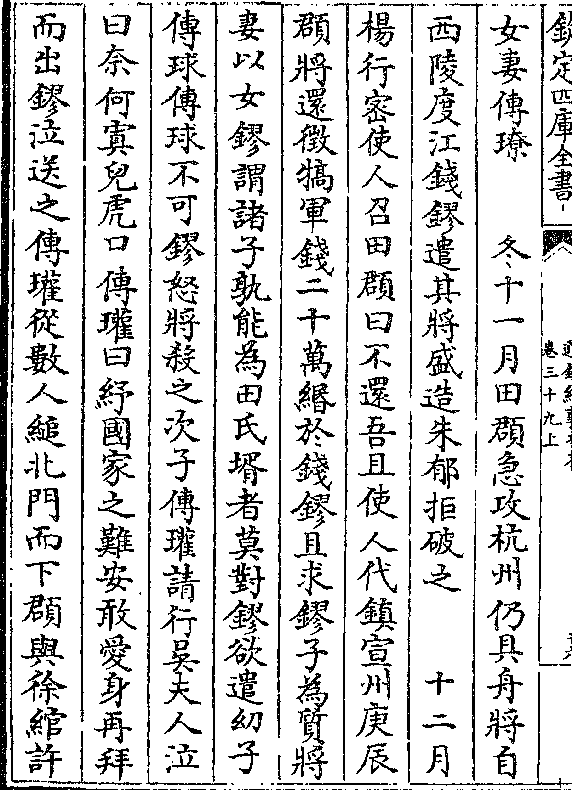 欽定四庫全書
卷三十九上
女妻傳璙　冬十一月田頵急攻杭州仍具舟將自
西陵度江錢鏐遣其將盛造朱郁拒破之　十二月
楊行密使人召田頵曰不還吾且使人代鎮宣州庚辰
頵將還徵犒軍錢二十萬緡於錢鏐且求鏐子為質將
妻以女鏐謂諸子孰能為田氏壻者莫對鏐欲遣幼子
傳球傳球不可鏐怒將殺之次子傳瓘請行吳夫人泣
曰奈何寘兒虎口傳瓘曰紓國家之難安敢愛身再拜
而出鏐泣送之傳瓘從數人縋北門而下頵與徐綰許